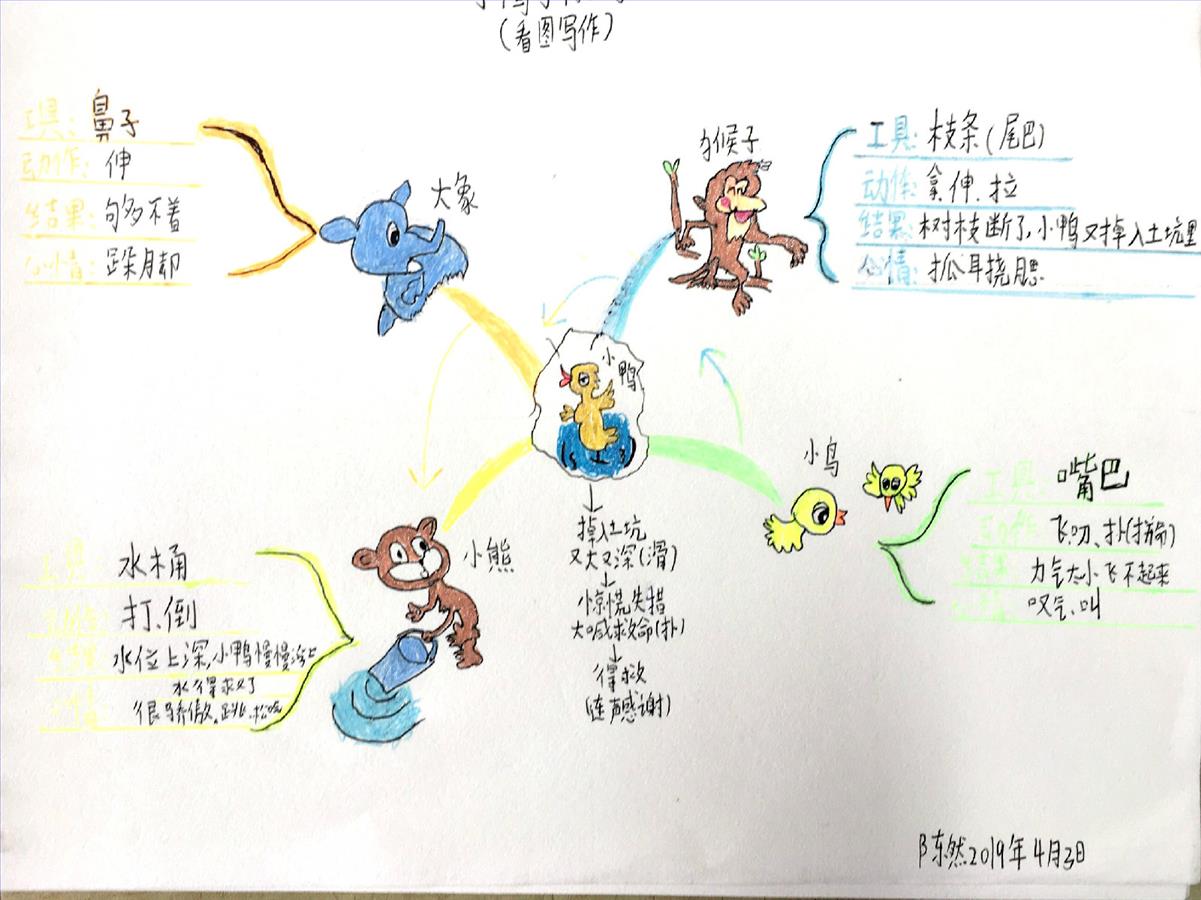 (看图写作)
大象
工具：鼻子
动作：伸
结果：够不着
心情：跺脚
猴子
工具：枝条(尾巴)
动作：拿、伸、拉
结果：树枝断了，小鸭又掉入土坑里
心情：抓耳挠腮
小鸭
掉入土坑
又大又深(滑)
惊慌失措
大喊求救命(扑)
得救
(连声感谢)
小鸟
工具：嘴巴
动作：飞、叨、扑(拼命)
结果：力气太小飞不起来
叹气、叫
小熊
工具：水桶
打、倒
水位上深，小鸭慢慢浮上
水得救了
很骄傲，跳、
陈然2019年4月3日